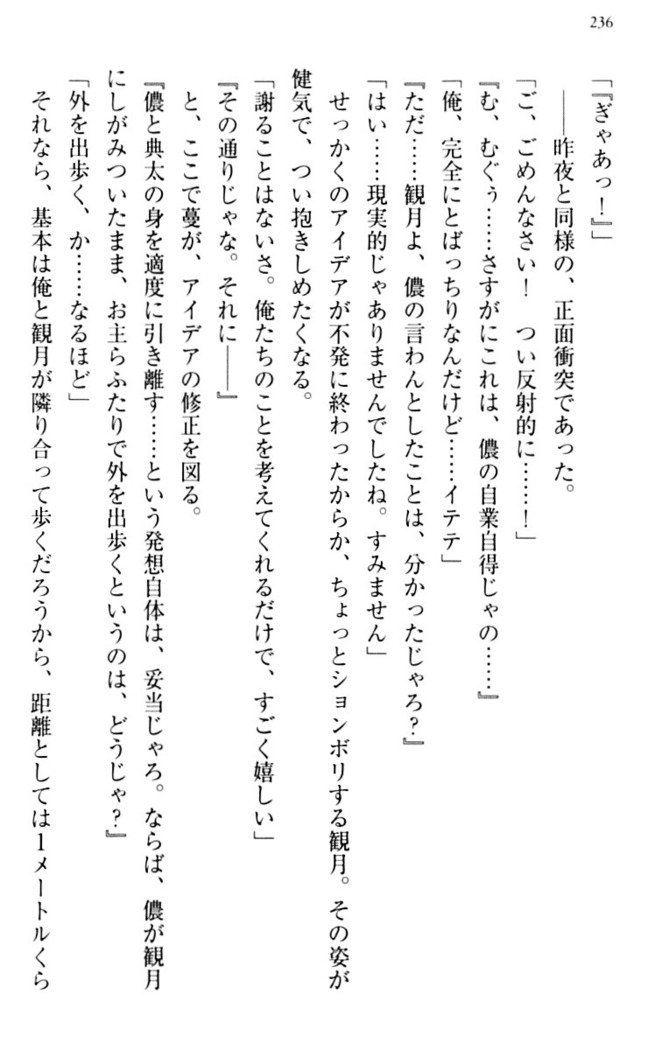 236
「『ぎゃあっ！』」
　――昨夜と同様の、正面衝突であった。
「ご、ごめんなさい！　つい反射的に……！」
『む、むぐぅ……さすがにこれは、儂の自業自得じゃの……』
「俺、完全にとばっちりなんだけど……イテテ」
『ただ……観月よ、儂の言わんとしたことは、分かったじゃろ？』
「はい……現実的じゃありませんでしたね。すみません」
　せっかくのアイデアが不発に終わったからか、ちょっとションボリする観月。その姿が
健気で、つい抱きしめたくなる。
「謝ることはないさ。俺たちのことを考えてくれるだけで、すごく嬉しい」
『その通りじゃな。それに――』
　と、ここで蔓が、アイデアの修正を図る。
『儂と典太の身を適度に引き離す……という発想自体は、妥当じゃろ。ならば、儂が観月
にしがみついたまま、お主らふたりで外を出歩くというのは、どうじゃ？』
「外を出歩く、か……なるほど」
　それなら、基本は俺と観月が隣り合って歩くだろうから、距離としては1メートルくら